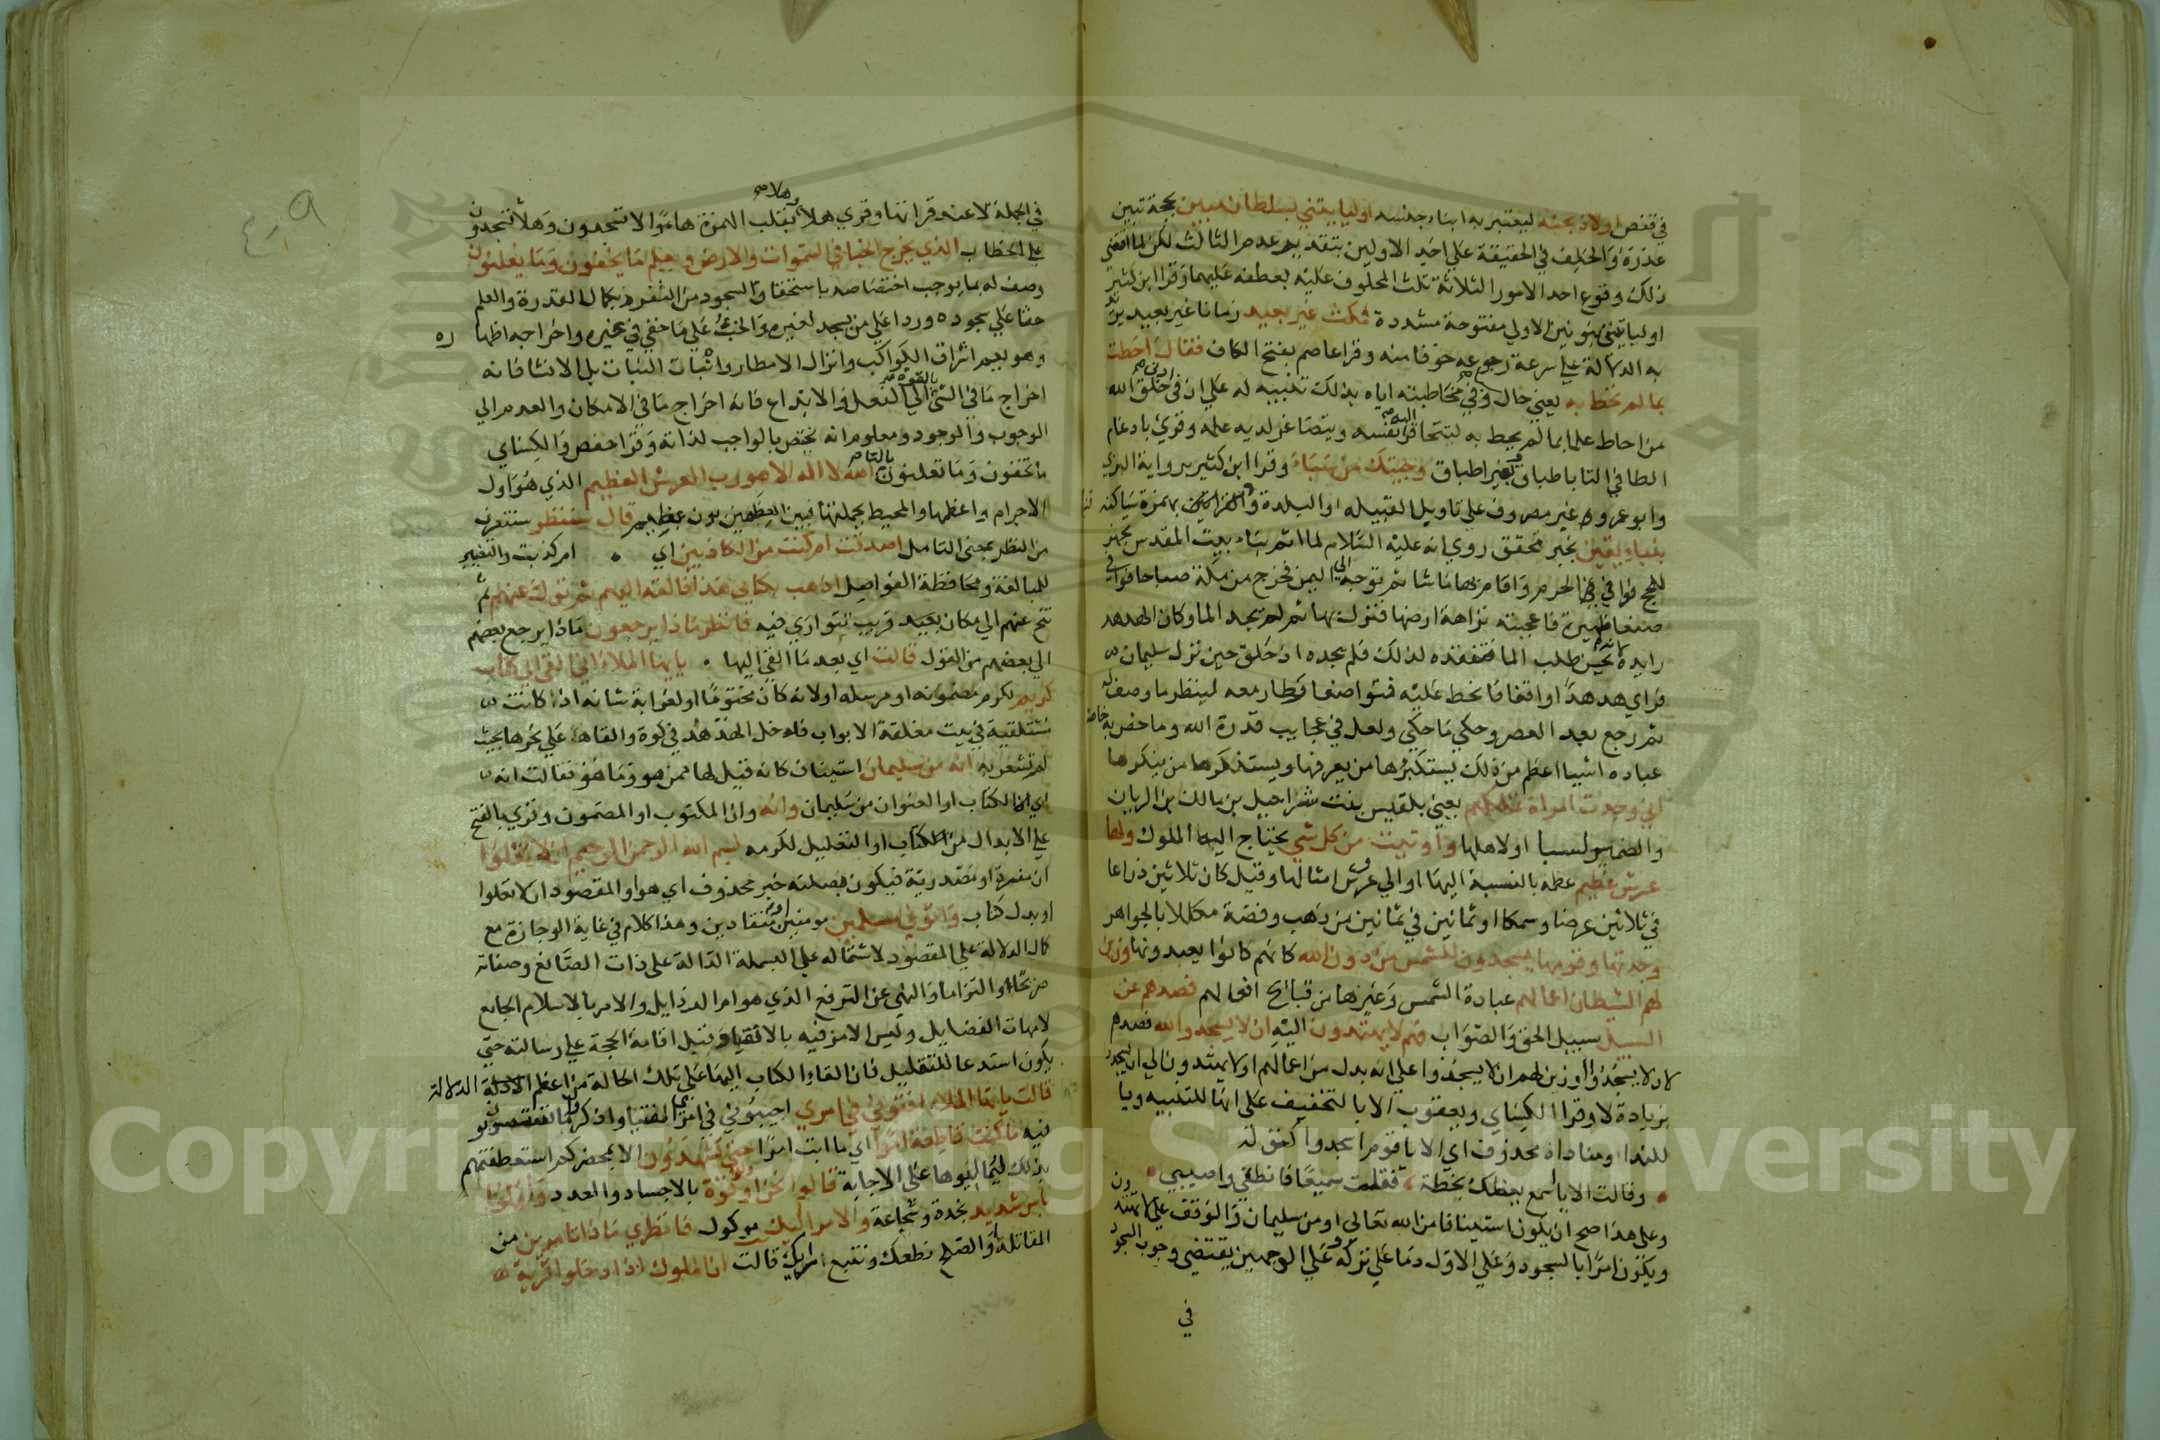 في قفص او لاذبحنه ليعتبر به ابناء جنسه اوليأتيني بسلطان مبين بحجة تبين
عذره والحلف في الحقيقة علي احد الاولين بتقدير عدم الثالث لكن لما اقتضي
ذلك وقوع احد الامور الثلاثة ثلث المحلوف عليه بعطفه عليهما وقرا ابن كثير
اوليأتينني بنونين الاولي مفتوحة مشددة فمكث غير بعيد زمانا غير بعيد يريد
به الدلالة علي سرعة رجوعه خوفا منه وقرا عاصم بفتح الكاف فقال احطت
بما لم تحط به يعني حال وفي مخاطبته اياه بذلك تنبيه له علي ان في ادني خلق الله
من احاط علما بما لم يحط به لتتحاقر اليه نفسه ويتصاغر لديه علمه وقري بادغام
الطا في التا باطباق وبغير اطباق وجيتك من سباء وقرا ابن كثير برواية البزي
وابو عمرو غير مصروف علي تاويل القبيله او البلدة والقواس بهمزة ساكنه
بنباء يقين بخبر محقق روي انه عليه السلام لما اتم بناء بيت المقدس تجهز
للحج فوافي الحرم واقام بها ما شا ثم توجه الي اليمن فخرج من مكة صباحا فوافي
صنعا ظهيرة فاعجبته نزاهة ارضها فنزل بها ثم لم يجد الما وكان الهدهد
رايده لانه يحسن طلب الما فتفقده لذلك فلم يجده اذ حلق حين نزل سليمان
فراي هدهدا واقفا فانحط عليه فتواصفا وطار معه لينظر ما وصف له
ثم رجع بعد العصر وحكي ما حكي ولعل في عجايب قدرة الله وما خص به خاصة
عباده اشيا اعظم من ذلك يستكبرها من يعرفها ويستنكرها من ينكرها
اني وجدت امراة تملكهم يعني بلقيس بنت شراحيل بن مالك بن الريان
والضمير لسبا او لاهلها واوتيت من كل شي يحتاج اليه الملوك ولها
عرش عظيم عظمه بالنسبة اليها او الي عروش امثالها وقيل كان ثلاثين ذراعا
في ثلاثين عرضا وسمكا او ثمانين في ثمانين من ذهب وفضة مكللا بالجواهر
وجدتها وقومها يسجدون للشمس من دون الله كانهم كانوا يعبدونها وزين
لهم الشيطان اعمالهم عبادة الشمس وغيرها من قبائح افعالهم فصدهم عن
السبيل سبيل الحق والصواب فهم لا يهتدون اليه ان لا يسجدوا لله فصدهم
لان لا يسجدوا او زين لهم ان لا يسجدوا علي انه بدل من اعمالهم او لا يهتدون الي ان يسجدوا
بزيادة لا وقرا الكسائي ويعقوب الا بالتخفيف علي انها للتنبيه ويا
للندا ومناداه محذوف اي الا يا قوم اسجدوا كقوله
وقالت الا يا اسمع يعظك بخطة فقلت سميعا فانطقي واصيبي
وعلي هذا صح ان يكون استينافا من الله تعالي او من سليمان والوقف علي لا يهتدون
ويكون امرا بالسجود وعلي الاول ذما علي تركه وعلي الوجهين يقتضي وجوب السجود
في
في الجملة لا عند قراتها وقري هلا وهلا بقلب الهمزة هاء والا تسجدون وهلا تسجدون
علي الخطاب الذي يخرج الخبأ في السموات والارض ويعلم ما يخفون وما يعلنون
وصف له بما يوجب اختصاصه باستحقاق السجود من التفرد بكمال القدرة والعلم
حثا علي سجوده وردا علي من يسجد لغيره والخبء علي ما خفي في غيره واخراجه اظهاره
وهو يعم اشراق الكواكب وانزال الامطار وانبات النبات بل الانشا فانه
اخراج ما في الشي بالقوة الي الفعل والابداع فانه اخراج ما في الامكان والعدم الي
الوجوب والوجود ومعلوم انه يختص بالواجب لذاته وقرا حفص والكسائي
ما تخفون وما تعلنون بالتا الله لا اله الا هو رب العرش العظيم الذي هو اول
الاجرام واعظمها والمحيط بجملتها فبين العظمين بون عظيم قال سننظر سنتعرف
من النظر بمعني التامل اصدقت ام كنت من الكاذبين اي ام كذبت والتغيير
للمبالغة ومحافظة الفواصل اذهب بكتابي هذا فالقه اليهم ثم تول عنهم ثم
تنح عنهم الي مكان بعيد قريب تتواري فيه فانظر ماذا يرجعون ماذا يرجع بعضهم
الي بعضهم من القول قالت اي بعد ما القي اليها يايها الملاء اني القي الي كتاب
كريم لكرم مضمونه او مرسله او لانه كان مختوما او لغرابة شانه اذ كانت
مستلقية في بيت مغلقة الابواب فدخل الهدهد في كوة والقاه علي نحرها بحيث
لم تشعر به انه من سليمان استيناف كانه قيل لها ممن هو وما هو فقالت انه
اي ان الكتاب او العنوان من سليمان وانه وان المكتوب او المضمون وقري بالفتح
علي الابدال من الكتاب او التعليل لكرمه بسم الله الرحمن الرحيم ان لا تعلوا
ان مفسرة او مصدرية فيكون بصلته خبر محذوف اي هو او المقصود ان لا تعلوا
او بدل كتاب واتوني مسلمين مومنين او منقادين وهذا كلام في غاية الوجازة مع
كمال الدلالة علي المقصود لاشتماله علي البسملة الدالة علي ذات الصانع وصفاته
صريحا او التزاما والنهي عن الترفع الذي هو ام الرذايل والامر بالاسلام الجامع
لامهات الفضايل وليس الامر فيه بالانقياد قبل اقامة الحجة علي رسالته حتي
يكون استدعا للتقليد فان القاء الكتاب اليها علي تلك الحالة من اعظم الادلة الدلالة
قالت يايها الملاء افتوني في امري اجيبوني في امري الفتيا واذكروا ما تستصوبون
فيه ما كنت قاطعة امرا اي ما ابت امرا حتي تشهدون الا بمحضركم استعطفتهم
بذلك ليمالئوها علي الاجابة قالوا نحن اولوا قوة بالاجساد والعدد واولوا
باس شديد نجدة وشجاعة والامر اليك موكول فانظري ماذا تامرين من
المقاتلة والصلح نطعك ونتبع رايك قالت ان الملوك اذا دخلوا قرية
Copyright © King Saud University